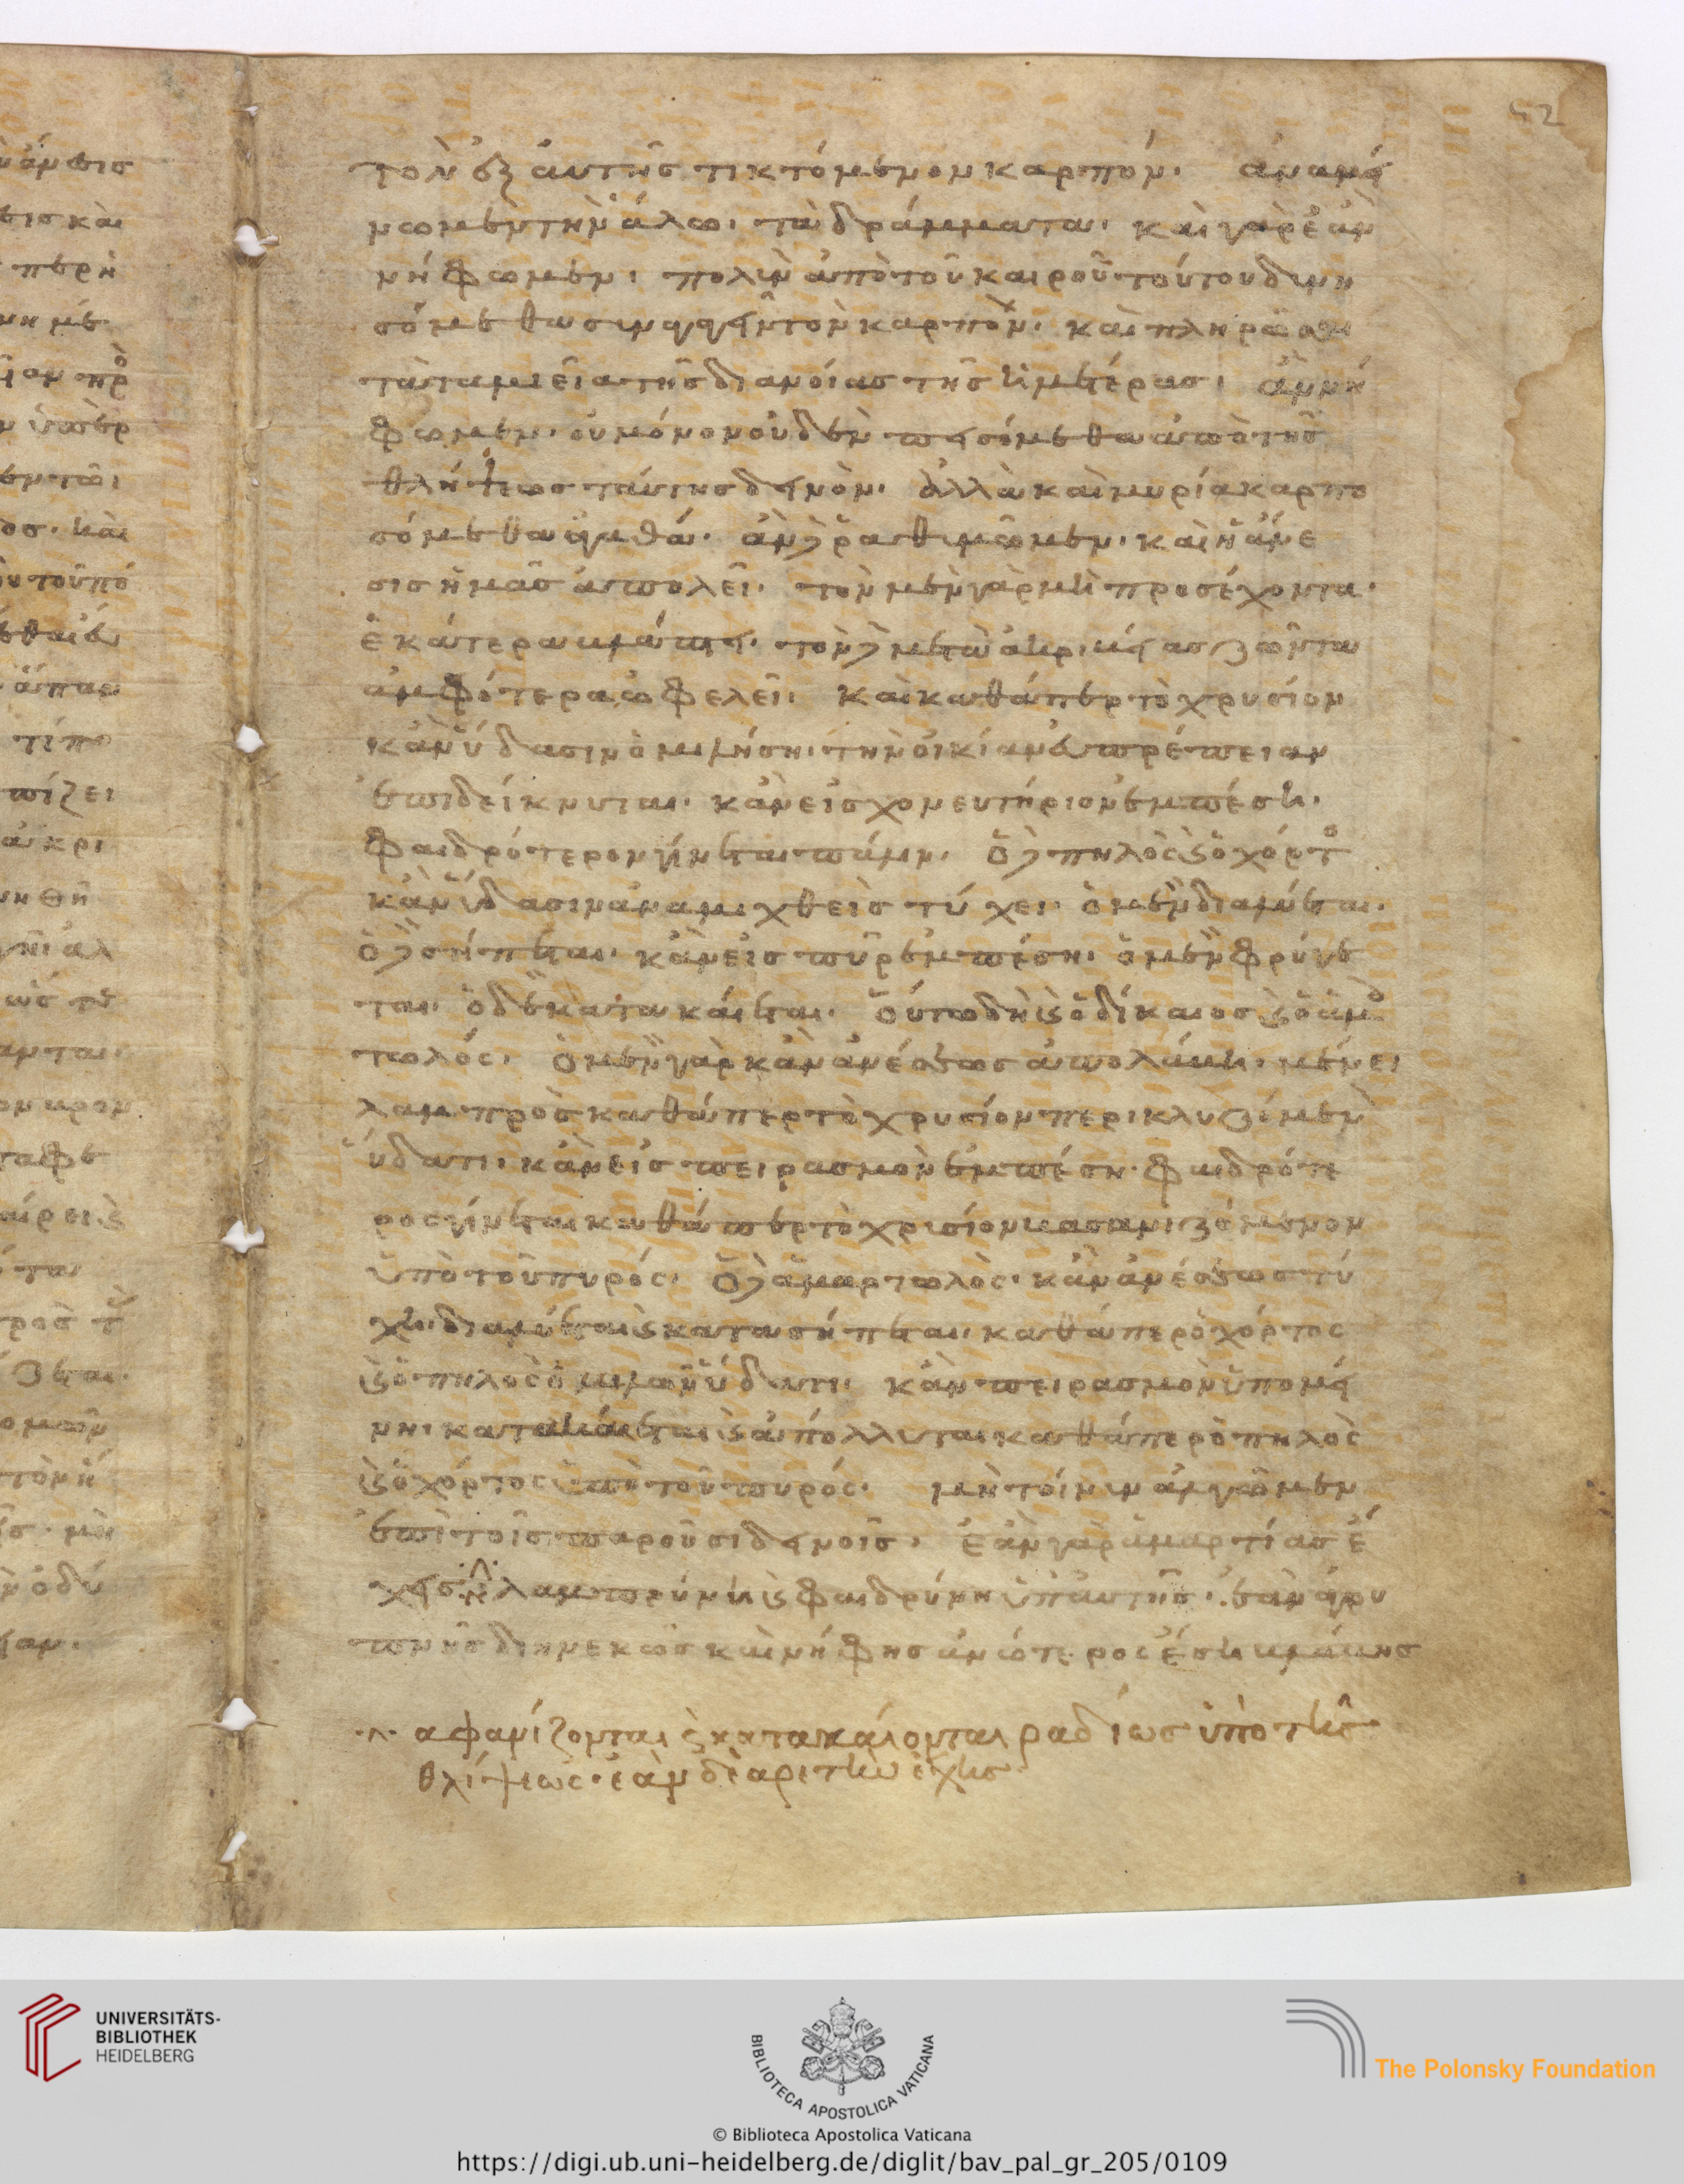 τὸν ἐξ αὐτῆς τικτόμενον καρπόν. ἀναμέ
νωμεν τὴν ἅλω. τὰ δράγματα. καὶ γὰρ ἐὰν
νήφωμεν. πολὺν ἀπὸ τοῦ καιροῦ τούτου δυνη
σόμεθα συναγαγεῖν τὸν καρπὸν. καὶ πληρῶσαι
τὰ ταμιεῖα τῆς διανοίας τῆς ἡμετέρας. ἂν νή
φωμεν. οὐ μόνον οὐδὲν πεισόμεθα ἀπὸ τῆς
θλίψεως ταύτης δεινὸν. ἀλλὰ καὶ μυρία καρπω
σόμεθα ἀγαθά. ἂν δὲ ῥαθυμῶμεν. καὶ ἡ ἄνε
σις ἡμᾶς ἀπολεῖ. τὸν μὲν γὰρ μὴ προσέχοντα.
ἑκάτερα βλάπτει. τὸν δὲ μετὰ ἀκριβείας ζῶντα
ἀμφότερα ὠφελεῖ. καὶ καθάπερ τὸ χρυσίον
κἂν ὕδασιν ὁμιλήση. τὴν οἰκίαν εὐπρέπειαν
ἐπιδείκνυται. κἂν εἰς χονευτήριον ἐμπέση.
φαιδρότερον γίνεται πάλιν. ὁ δὲ πηλὸς καὶ ὁ χόρτος
κἂν ὕδασιν ἀναμιχθεὶς τύχει. ὁ μὲν διαλύεται.
ὁ δὲ σήπεται. κἂν εἰς πῦρ ἐμπέση. ὁ μὲν φρύγε
ται. ὁ δὲ κατακαίεται. οὕτω δὴ καὶ ὁ δίκαιος καὶ ὁ ἁμαρ
τωλός. ὁ μὲν γὰρ κἂν ἀνέσεως ἀπολαύη. μένει
λαμπρὸς καθάπερ τὸ χρυσίον περικλυζόμενον
ὕδατι. κἂν εἰς πειρασμὸν ἐμπέση. φαιδρότε
ρος γίνεται καθάπερ τὸ χρυσίον βασανιζόμενον
ὑπὸ τοῦ πυρός. ὁ δὲ ἁμαρτωλὸς. κἂν ἀνέσεως τύ
χη. διαλύεται καὶ κατασήπεται. καθάπερ ὁ χόρτος
καὶ ὁ πηλὸς ὁμιλῶν ὕδατι. κἂν πειρασμὸν ὑπομεί
νη. κατακαίεται καὶ ἀπόλλυται καθάπερ ὁ πηλὸς
καὶ ὁ χόρτος ὑπὸ τοῦ πυρός. μὴ τοίνυν ἀλγῶμεν
ἐπὶ τοῖς παροῦσι δεινοῖς. ἐὰν γὰρ ἁμαρτίας ἔ
χεις λαμπρύνη καὶ φαιδρύνη ὑπ' αὐτῆς. ἐὰν ἀγρυ
πνῆς διηνεκῶς καὶ νήφης ἀνώτερος ἔση βλάβης
ἀφανίζονται καὶ κατακαίονται ραδίως ὑπὸ τῆς
θλίψεως. ἐὰν δὲ ἀρετὴν ἔχης
UNIVERSITÄTS-
BIBLIOTHEK
HEIDELBERG
BIBLIOTECA APOSTOLICA VATICANA
The Polonsky Foundation
© Biblioteca Apostolica Vaticana
https://digi.ub.uni-heidelberg.de/diglit/bav_pal_gr_205/0109